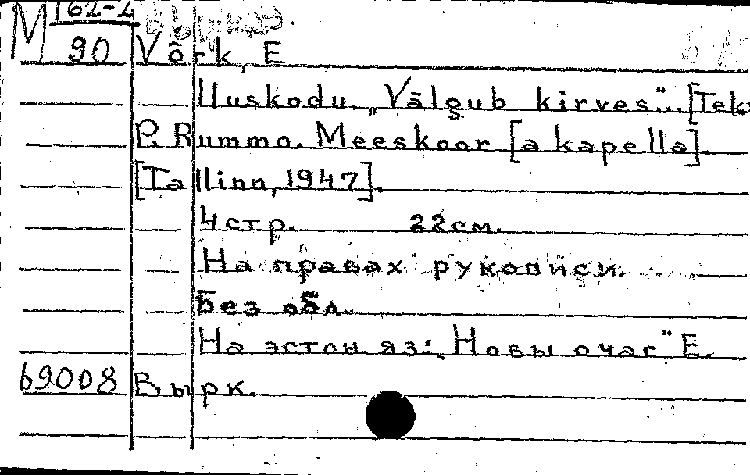 M 162-2
90 Võrk, E
Uuskodu. „Välgub kirves"... [Tek
P. Rummo. Meeskoor [a kapella].
[Tallinn, 1947].
4 стр. 22 см.
На правах рукописи.
Без обл.
На эстон яз: „Новы очаг" Е.
69008 Вырк.